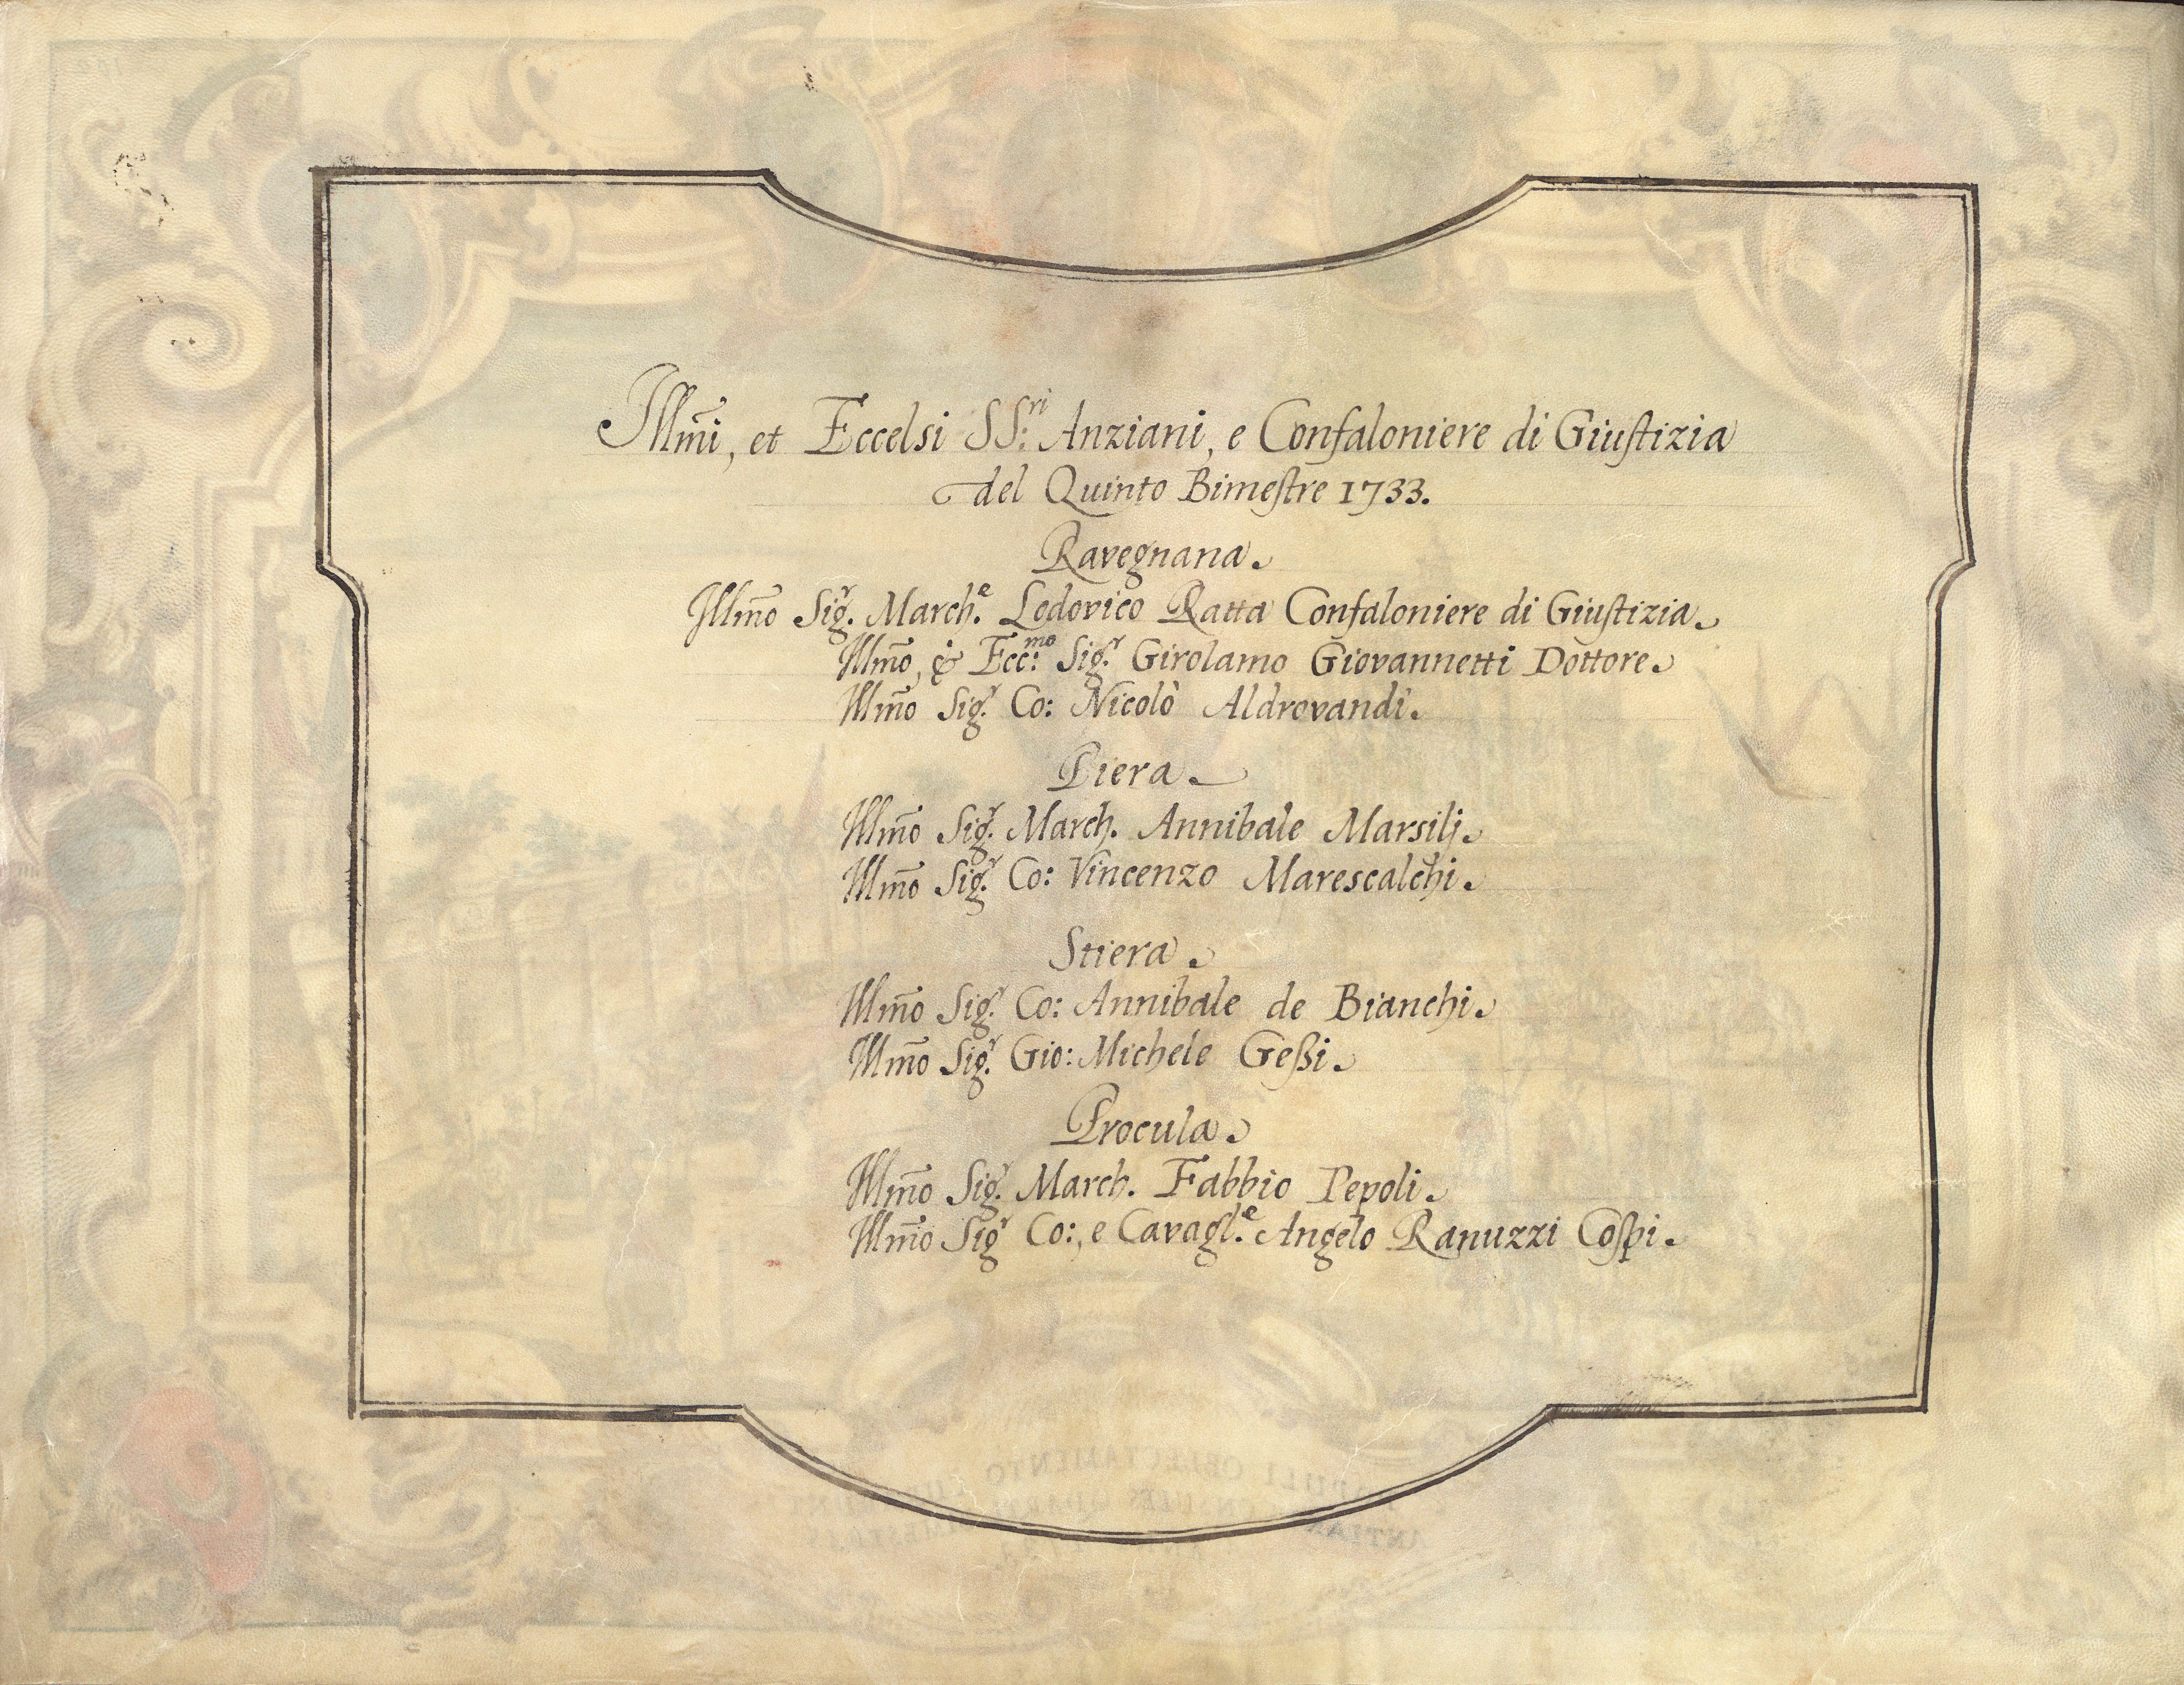 Illm̃i, et Eccelsi SS:ri Anziani, e Confaloniere di Giustizia
del Quinto Bimestre 1733.
Ravegnana.
Illm̃o Sig.r March.e Lodovico Ratta Confaloniere di Giustizia.
Illm̃o, & Ecc:mo Sig.r Girolamo Giovannetti Dottore.
Illm̃o Sig.r Co: Nicolò Aldrovandi.
Piera.
Illm̃o Sig.r March. Annibale Marsilj.
Illm̃o Sig.r Co: Vincenzo Marescalchi.
Stiera.
Illm̃o Sig.r Co: Annibale de Bianchi.
Illm̃o Sig.r Gio: Michele Geßi.
Procula.
Illm̃o Sig.r March. Fabbio Pepoli.
Illm̃o Sig.r Co:, e Cavagl.e Angelo Ranuzzi Cospi.